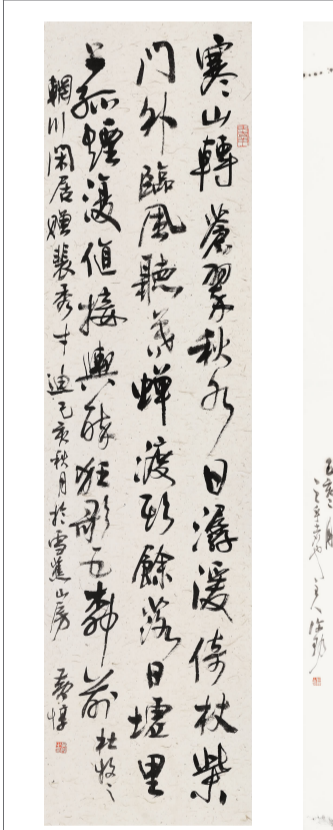 寒山轉蒼翠秋水日潺湲倚杖柴
門外臨風聽暮蟬渡頭餘落日墟里
上孤煙復值接輿醉狂歌五柳前 杜牧之
輞川閑居贈裴秀才迪 己亥秋月於雪蕉山房 黃惇